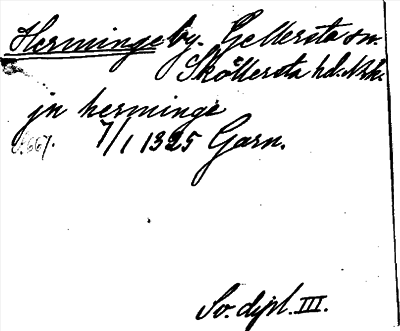 Herminge by. Gellersta sn.
Sköllersta hd. Nrk.
jn herminge
7/1 1325 Garn.
S. 667.
Sv. dipl. III.